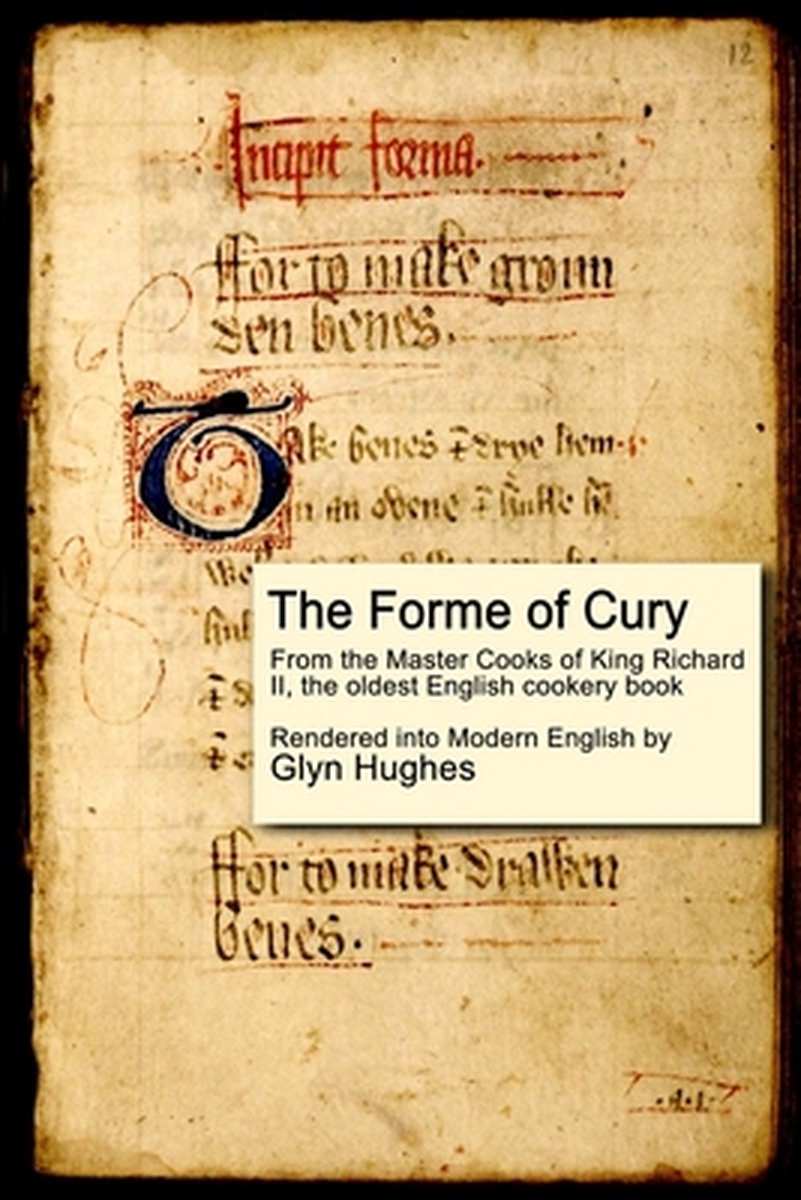 12
Incipit forma.
ffor to make groun
den benes.
Take benes ⁊ drye hem
in an ovene ⁊ hulle hē
ffor to make drawen
benes.
The Forme of Cury
From the Master Cooks of King Richard
II, the oldest English cookery book
Rendered into Modern English by
Glyn Hughes